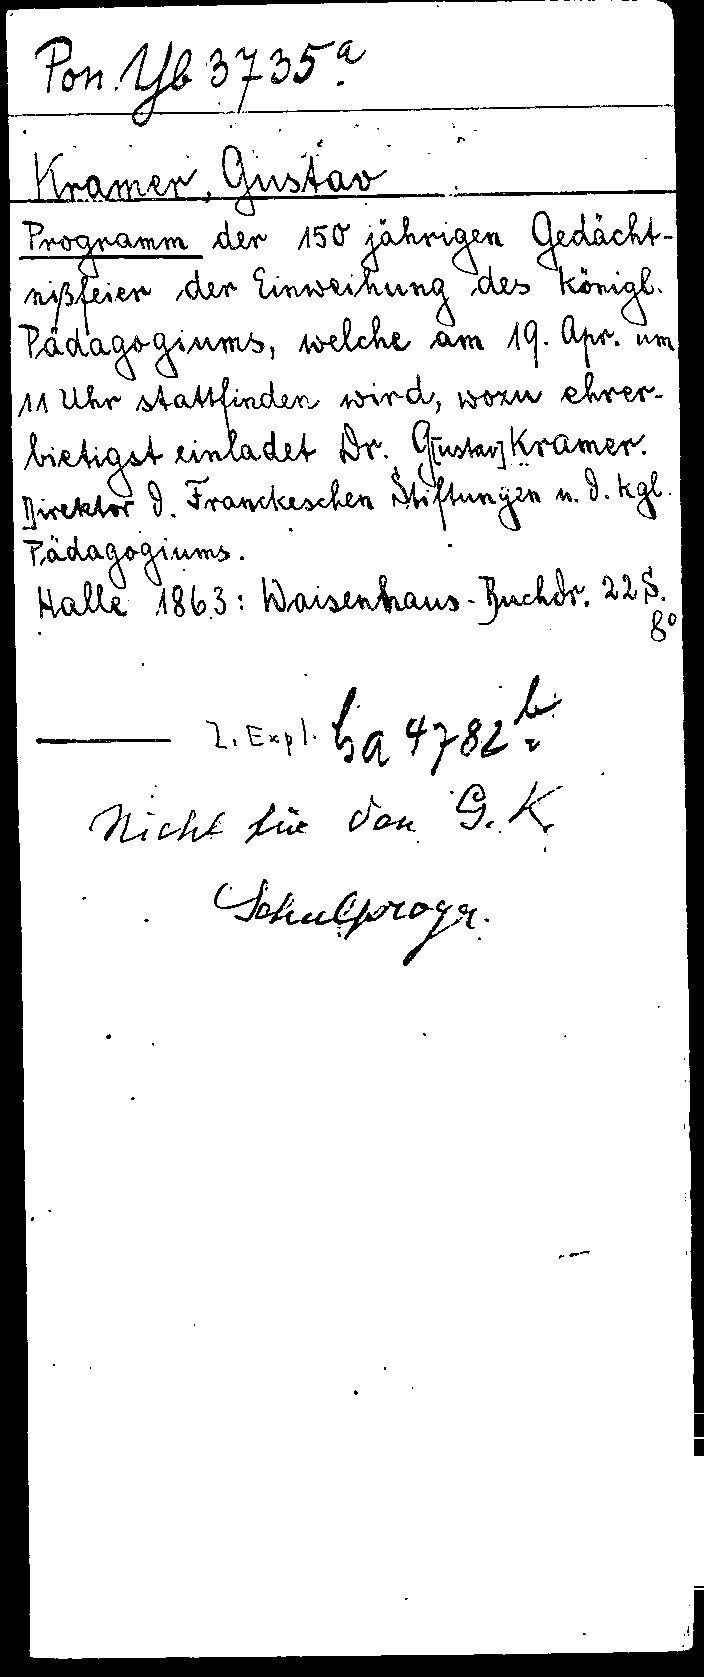 Pon. Yb 3735 a
Kramer, Gustav
Programm der 150 jährigen Gedächt-
nißfeier der Einweihung des königl.
Pädagogiums, welche am 19. Apr. um
11 Uhr stattfinden wird, wozu ehrer-
bietigst einladet Dr. G[ustav] Kramer.
Direktor d. Franckeschen Stiftungen u. d. kgl.
Pädagogiums.
Halle 1863: Waisenhaus-Buchdr. 22 S.
8°
2. Expl. 4782 b
Nicht für den G. K.
Schulprogr.